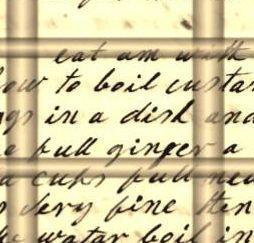 eat am with
how to boil custar
ngs in a dish and
e full ginger a
d cups full
s very fine then
he watar boil in